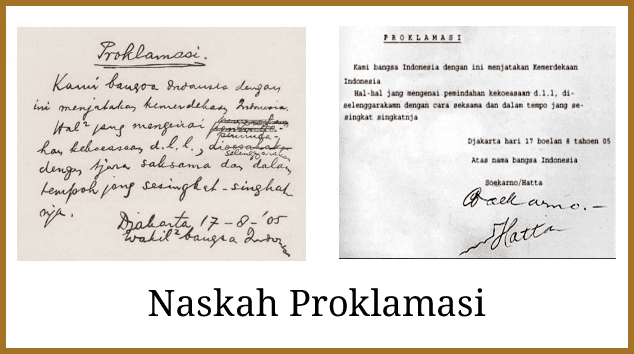 Proklamasi.
Kami bangsa Indonesia dengan
ini menjatakan kemerdekaan Indonesia.
Hal² jang mengenai
peminda-
han kekoeasaan d.l.l., diselenggarakan
dengan tjara saksama dan dalam
tempoh jang sesingkat-singkat
nja.
Djakarta 17-8-'05
Wakil² bangsa Indonesia
PROKLAMASI
Kami bangsa Indonesia dengan ini menjatakan Kemerdekaan
Indonesia
Hal-hal jang mengenai pemindahan kekoeasaan d.l.l, di-
selenggarakamn dengan cara seksama dan dalam tempo jang se-
singkat singkatnja
Djakarta hari 17 boelan 8 tahoen 05
Atas nama bangsa Indonesia
Soekarno/Hatta
Soekarno.-
Hatta
Naskah Proklamasi